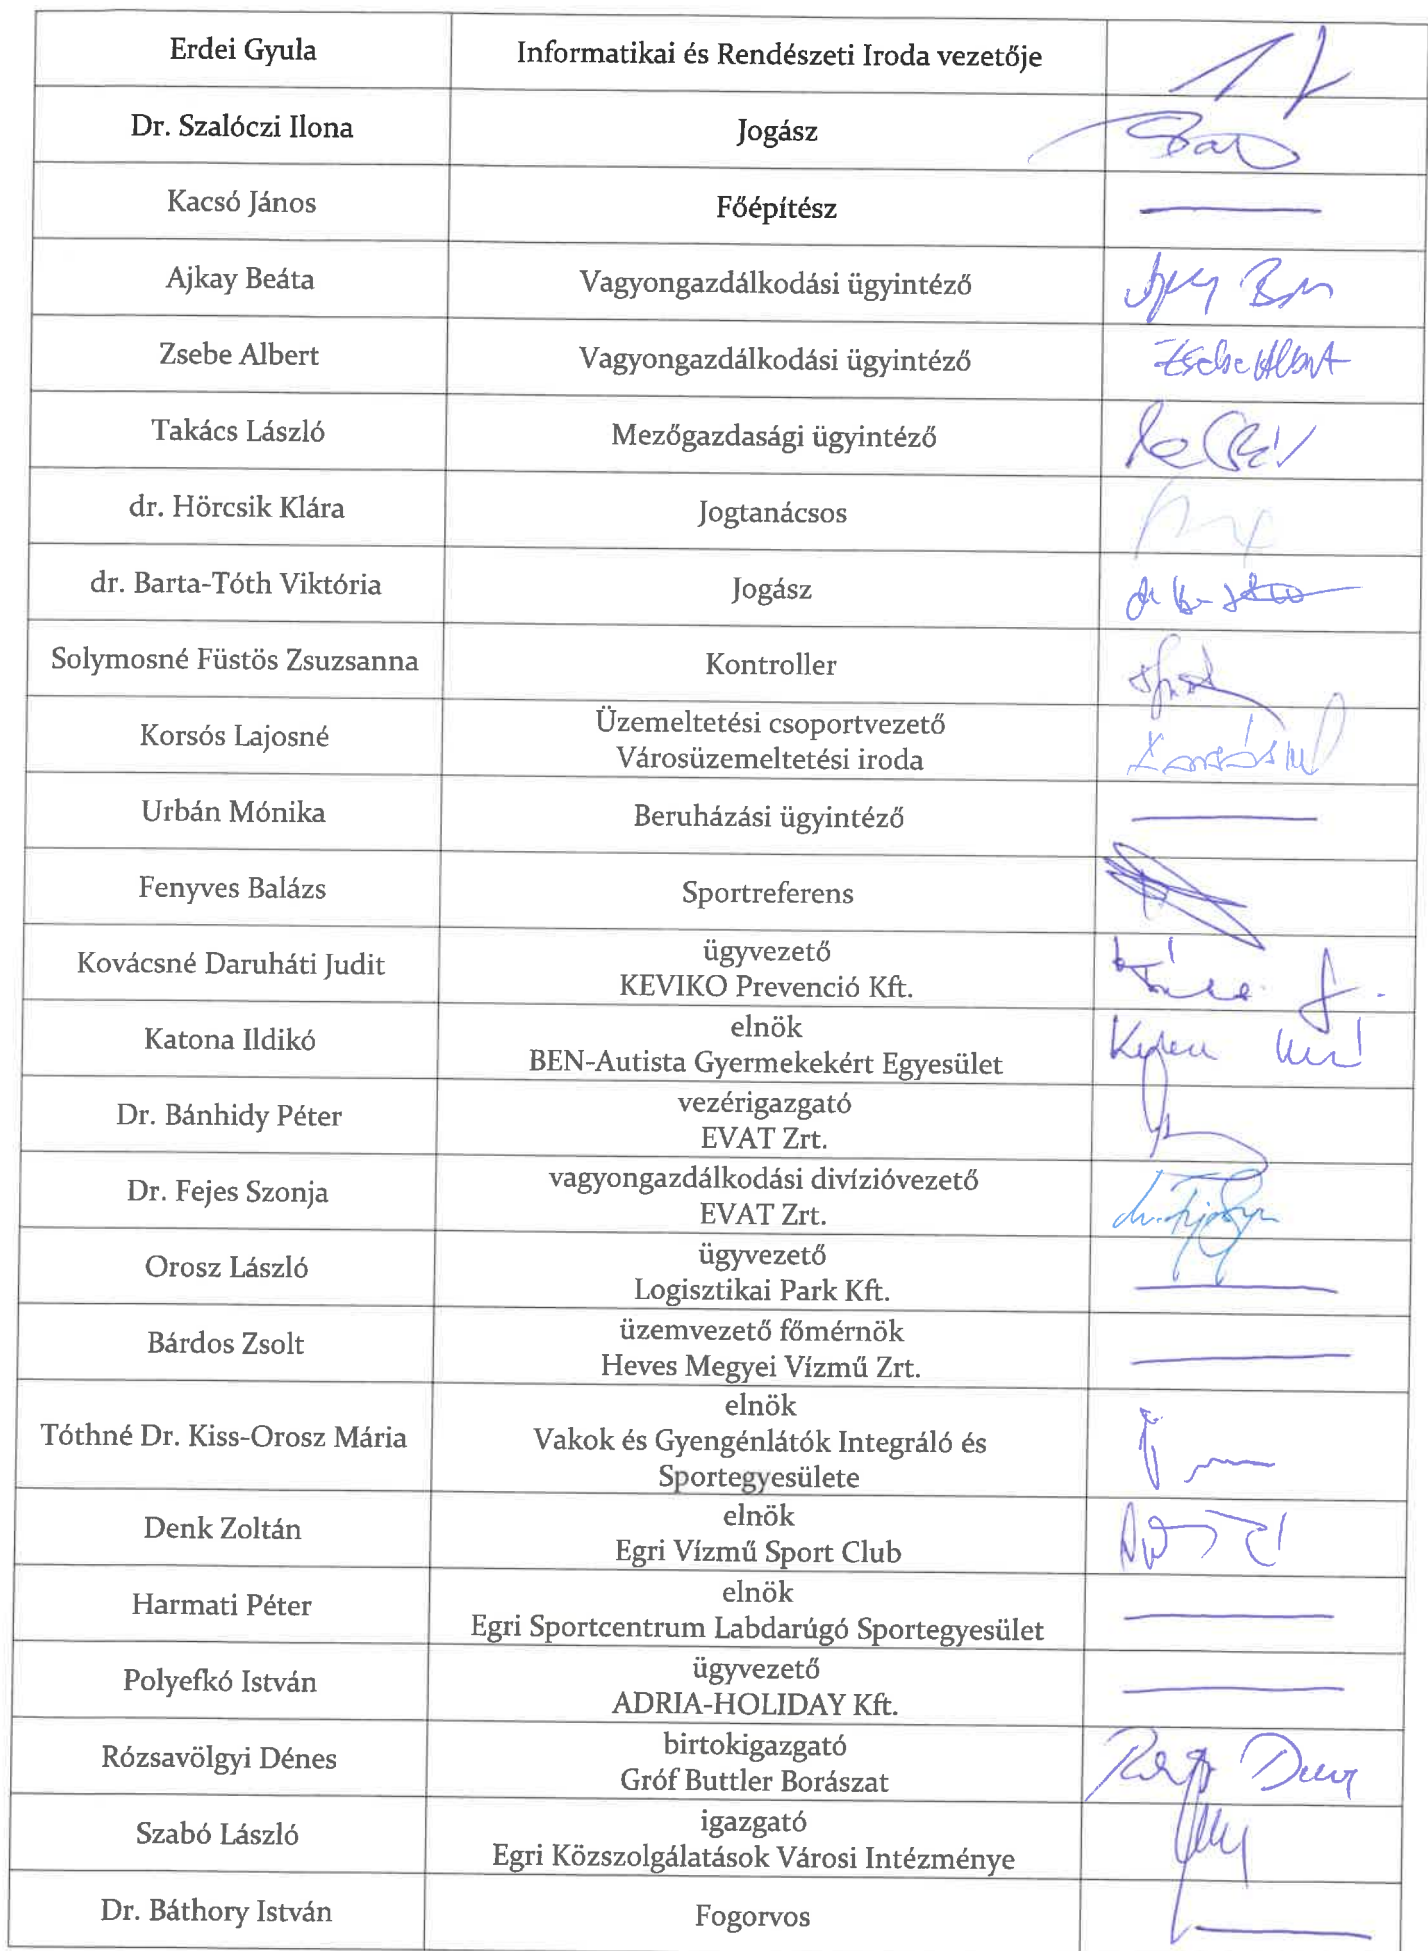 Erdei Gyula Informatikai és Rendészeti Iroda vezetője
Dr. Szalóczi Ilona Jogász
Kacsó János Főépítész
Ajkay Beáta Vagyongazdálkodási ügyintéző
Zsebe Albert Vagyongazdálkodási ügyintéző Zsebe Albert
Takács László Mezőgazdasági ügyintéző
dr. Hörcsik Klára Jogtanácsos
dr. Barta-Tóth Viktória Jogász
Solymosné Füstös Zsuzsanna Kontroller
Korsós Lajosné Üzemeltetési csoportvezető
Városüzemeltetési iroda
Urbán Mónika Beruházási ügyintéző
Fenyves Balázs Sportreferens
Kovácsné Daruháti Judit ügyvezető
KEVIKO Prevenció Kft.
Katona Ildikó elnök
BEN-Autista Gyermekekért Egyesület
Dr. Bánhidy Péter vezérigazgató
EVAT Zrt.
Dr. Fejes Szonja vagyongazdálkodási divízióvezető
EVAT Zrt.
Orosz László ügyvezető
Logisztikai Park Kft.
Bárdos Zsolt üzemvezető főmérnök
Heves Megyei Vízmű Zrt.
elnök
Tóthné Dr. Kiss-Orosz Mária Vakok és Gyengénlátók Integráló és
Sportegyesülete
Denk Zoltán elnök
Egri Vízmű Sport Club
Harmati Péter elnök
Egri Sportcentrum Labdarúgó Sportegyesület
Polyefkó István ügyvezető
ADRIA-HOLIDAY Kft.
Rózsavölgyi Dénes birtokigazgató
Gróf Buttler Borászat
Szabó László igazgató
Egri Közszolgálatások Városi Intézménye
Dr. Báthory István Fogorvos